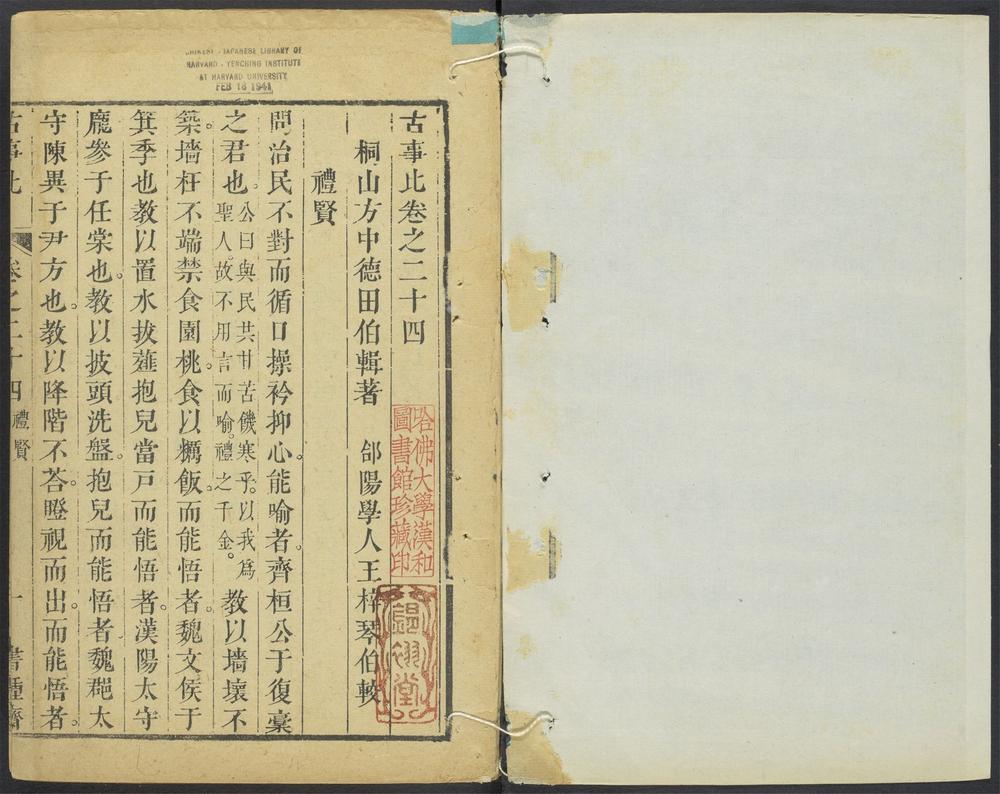 CHINESE - JAPANESE LIBRARY OF
HARVARD - YENCHING INSTITUTE
AT HARVARD UNIVERSITY
FEB 18 1941
古事比卷之二十四
哈佛大學漢和
圖書館珍藏印
桐山方中德田伯輯著　郃陽學人王梓琴伯較
禮賢
問治民不對而循口操衿抑心。能喻者。齊桓公于復槀
之君也。公曰與民共甘苦饑寒乎。以我爲
聖人。故不用言而喻。禮之千金。
教以墻壞不
築。墻枉不端禁食園桃。食以糲飯。而能悟者。魏文侯于
箕季也教以置水拔薤抱兒當戸而能悟者。漢陽太守
龐參于任棠也。教以披頭洗盤。抱兒而能悟者魏郡太
守陳異于尹方也。教以降階不荅。瞪視而出。而能悟者。
古事比
卷之二十四
禮賢
一
書種齋